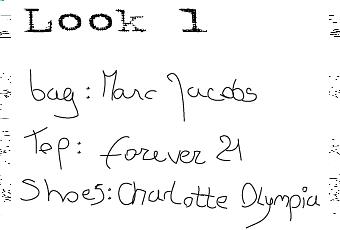 Look 1
bag: Marc Jacobs
Top: forever 21
Shoes: Charlotte Olympia